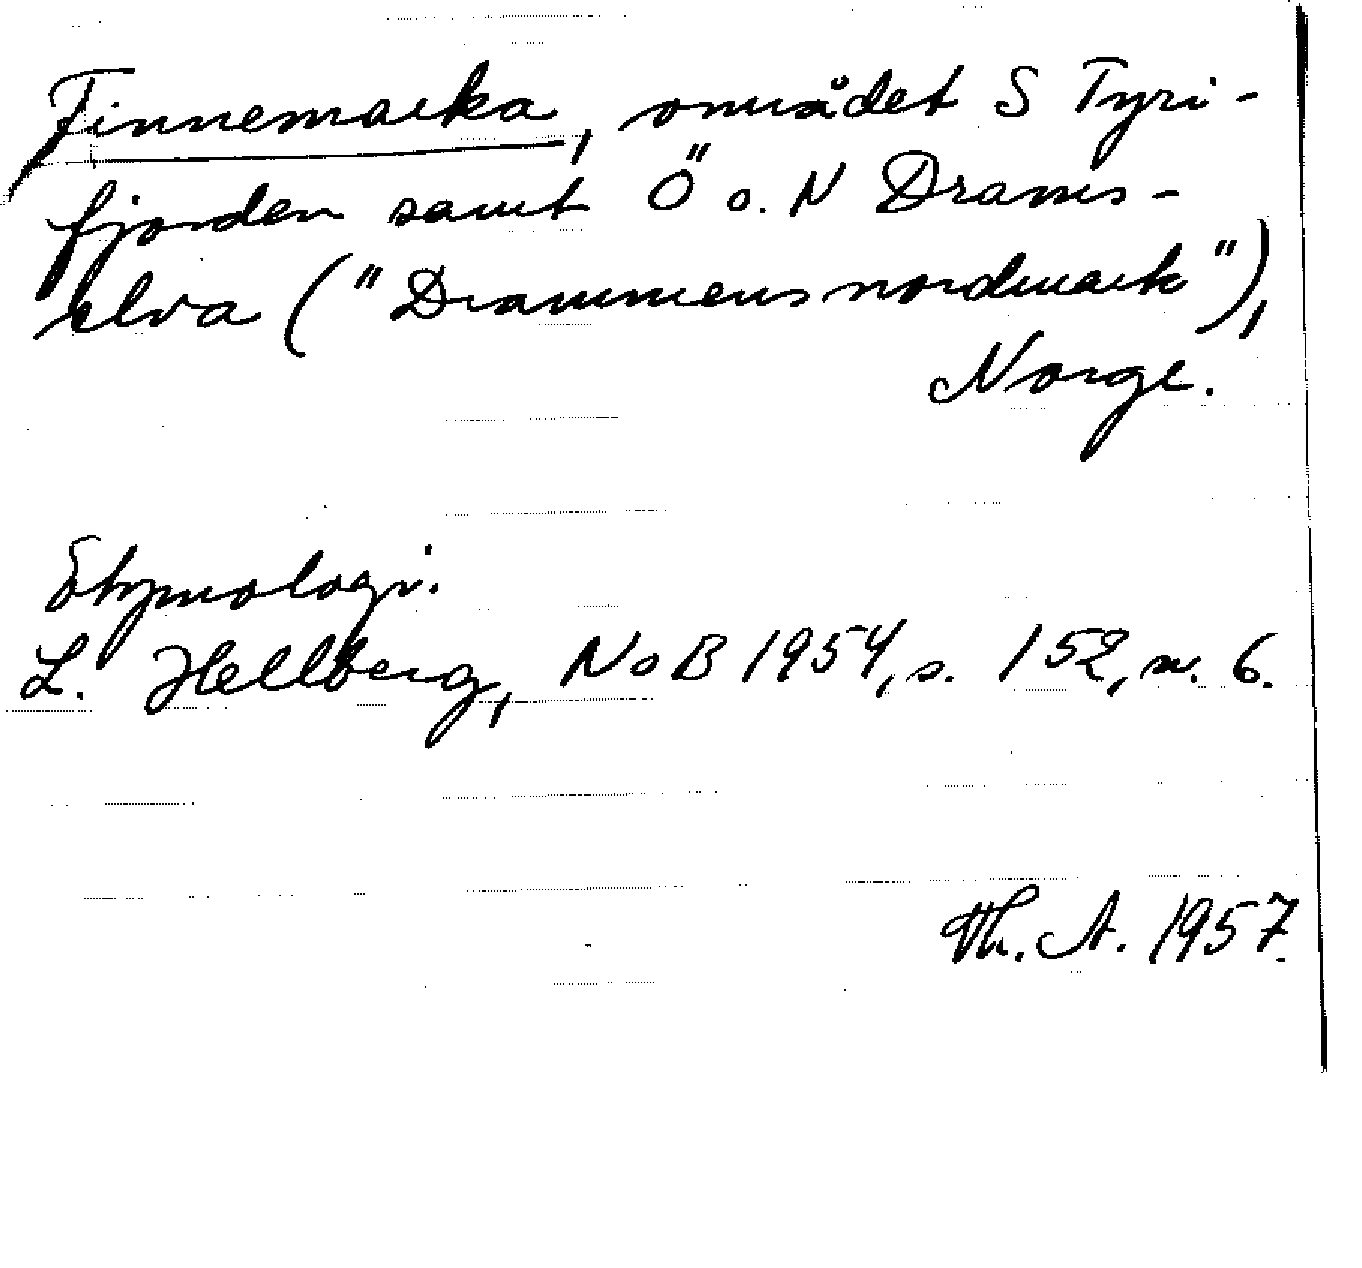 Finnemarka, området S Tyri-
fjorden samt Ö o. N Drams-
elva ("Drammens nordmark"),
Norge.
Etymologi.
L. Hellberg, NoB 1954, s. 152, n. 6.
Th. A. 1957.